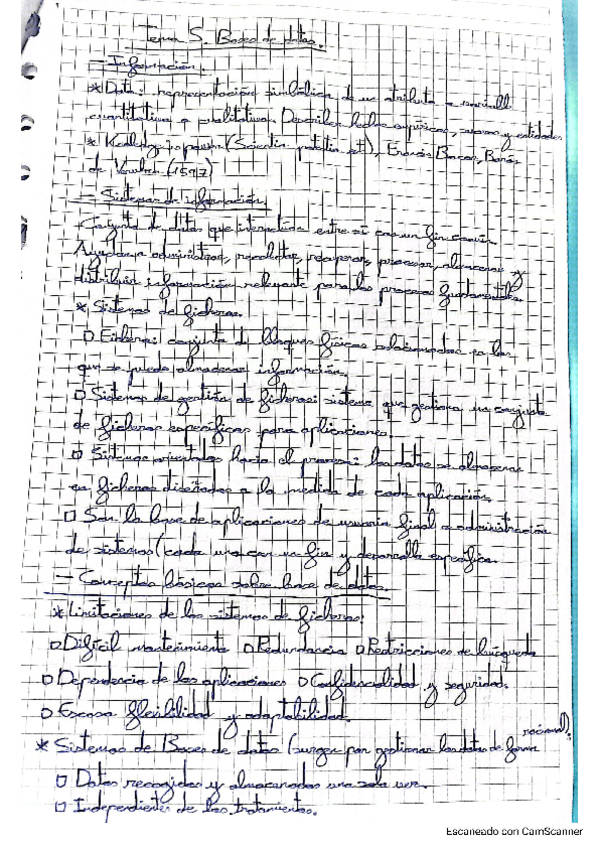 Tema 5. Bases de datos.
- Información.
* Dato: representación simbólica de un atributo o variable
cuantitativa o cualitativa. Describen hechos empíricos, sucesos y entidades.
* Knowledge is power (Scientia potentia est), Francis Bacon, Barón
de Verulam (1597)
- Sistemas de información.
Conjunto de datos que interactúan entre sí con un fin común
Ayudan a administrar, recolectar, recuperar, procesar, almacenar y
distribuir información relevante para los procesos fundamentales.
* Sistemas de ficheros.
□ Ficheros: conjunto de bloques físicos relacionados en los
que se puede almacenar información.
□ Sistemas de gestión de ficheros: sistema que gestiona un conjunto
de ficheros específicos para aplicaciones.
□ Sistemas orientados hacia el proceso: los datos se almacenan
en ficheros diseñados a la medida de cada aplicación.
□ Son la base de aplicaciones de usuario final o administración
de sistemas (cada uno con un fin y desarrollo específico.
- Conceptos básicos sobre base de datos.
* Limitaciones de los sistemas de ficheros:
□ Difícil mantenimiento □ Redundancia □ Restricciones de búsqueda
□ Dependencia de las aplicaciones □ Confidencialidad y seguridad.
□ Escasa flexibilidad y adaptabilidad.
* Sistemas de Bases de datos (surgen por gestionar los datos de forma
racional).
□ Datos recogidos y almacenados una sola vez.
□ Independientes de los tratamientos.
Escaneado con CamScanner